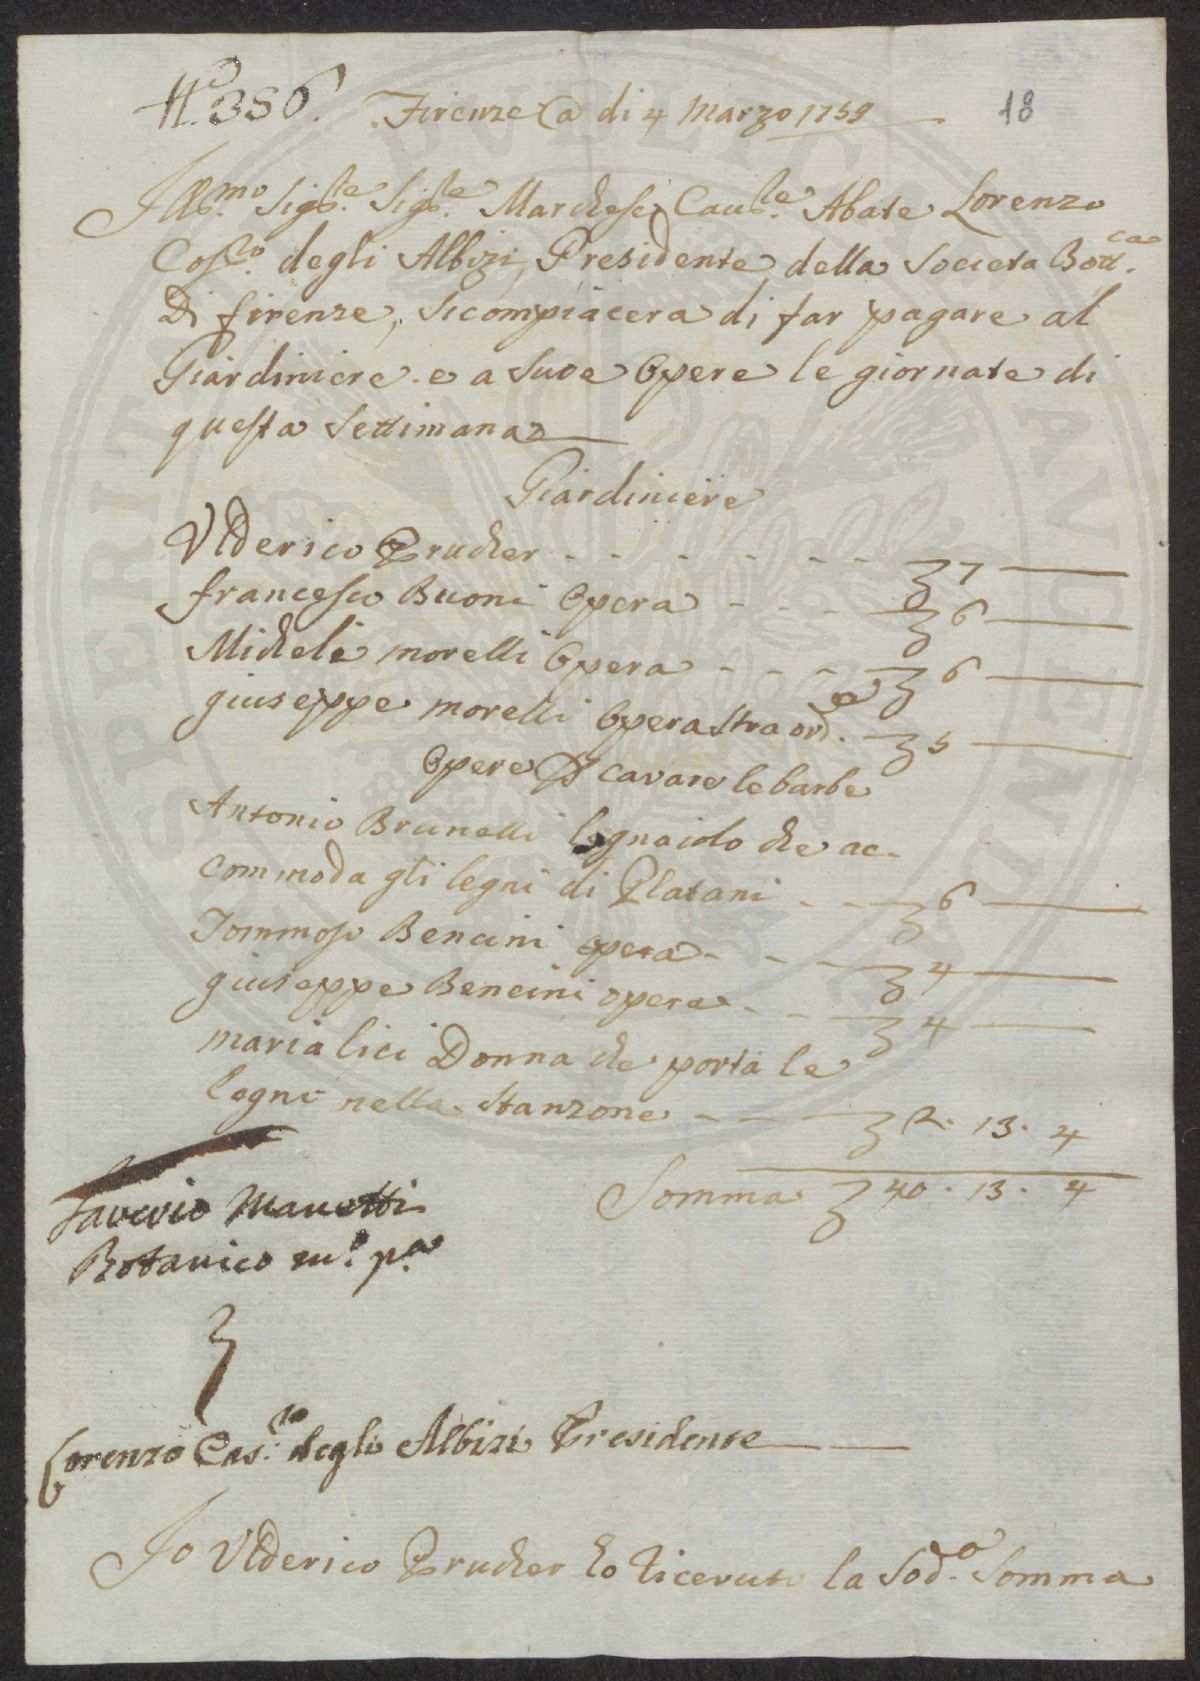 N.º 356. Firenze Ca di 4 Marzo 1759 18
Ill.mo Sig.re Sig.re Marchese Cav.re Abate Lorenzo
Cos.co degli Albizi, Presidente della Societa Bott.ca
Di firenze, si compiacera di far pagare al
Giardiniere e a sue Opere le giornate di
questa settimana
Giardiniere
Ulderico Prucher 7
francesco Buoni Opera 6
Michele morelli Opera 6
giuseppe morelli Opera straord.a 5
Opere P cavare le barbe
Antonio Brunelli legnaiolo che ac-
commoda gli legni di Platani 6
Tommaso Bencini opera 4
giuseppe Bencini opera 4
maria lici Donna che porta le
legni nella stanzone 2. 13. 4
Somma 40. 13. 4
Saverio Manetti
Botanico m.º p.a
Lorenzo Cas.co degli Albizi Presidente
Io Ulderico Prucher ho riceuto la Sod.a Somma